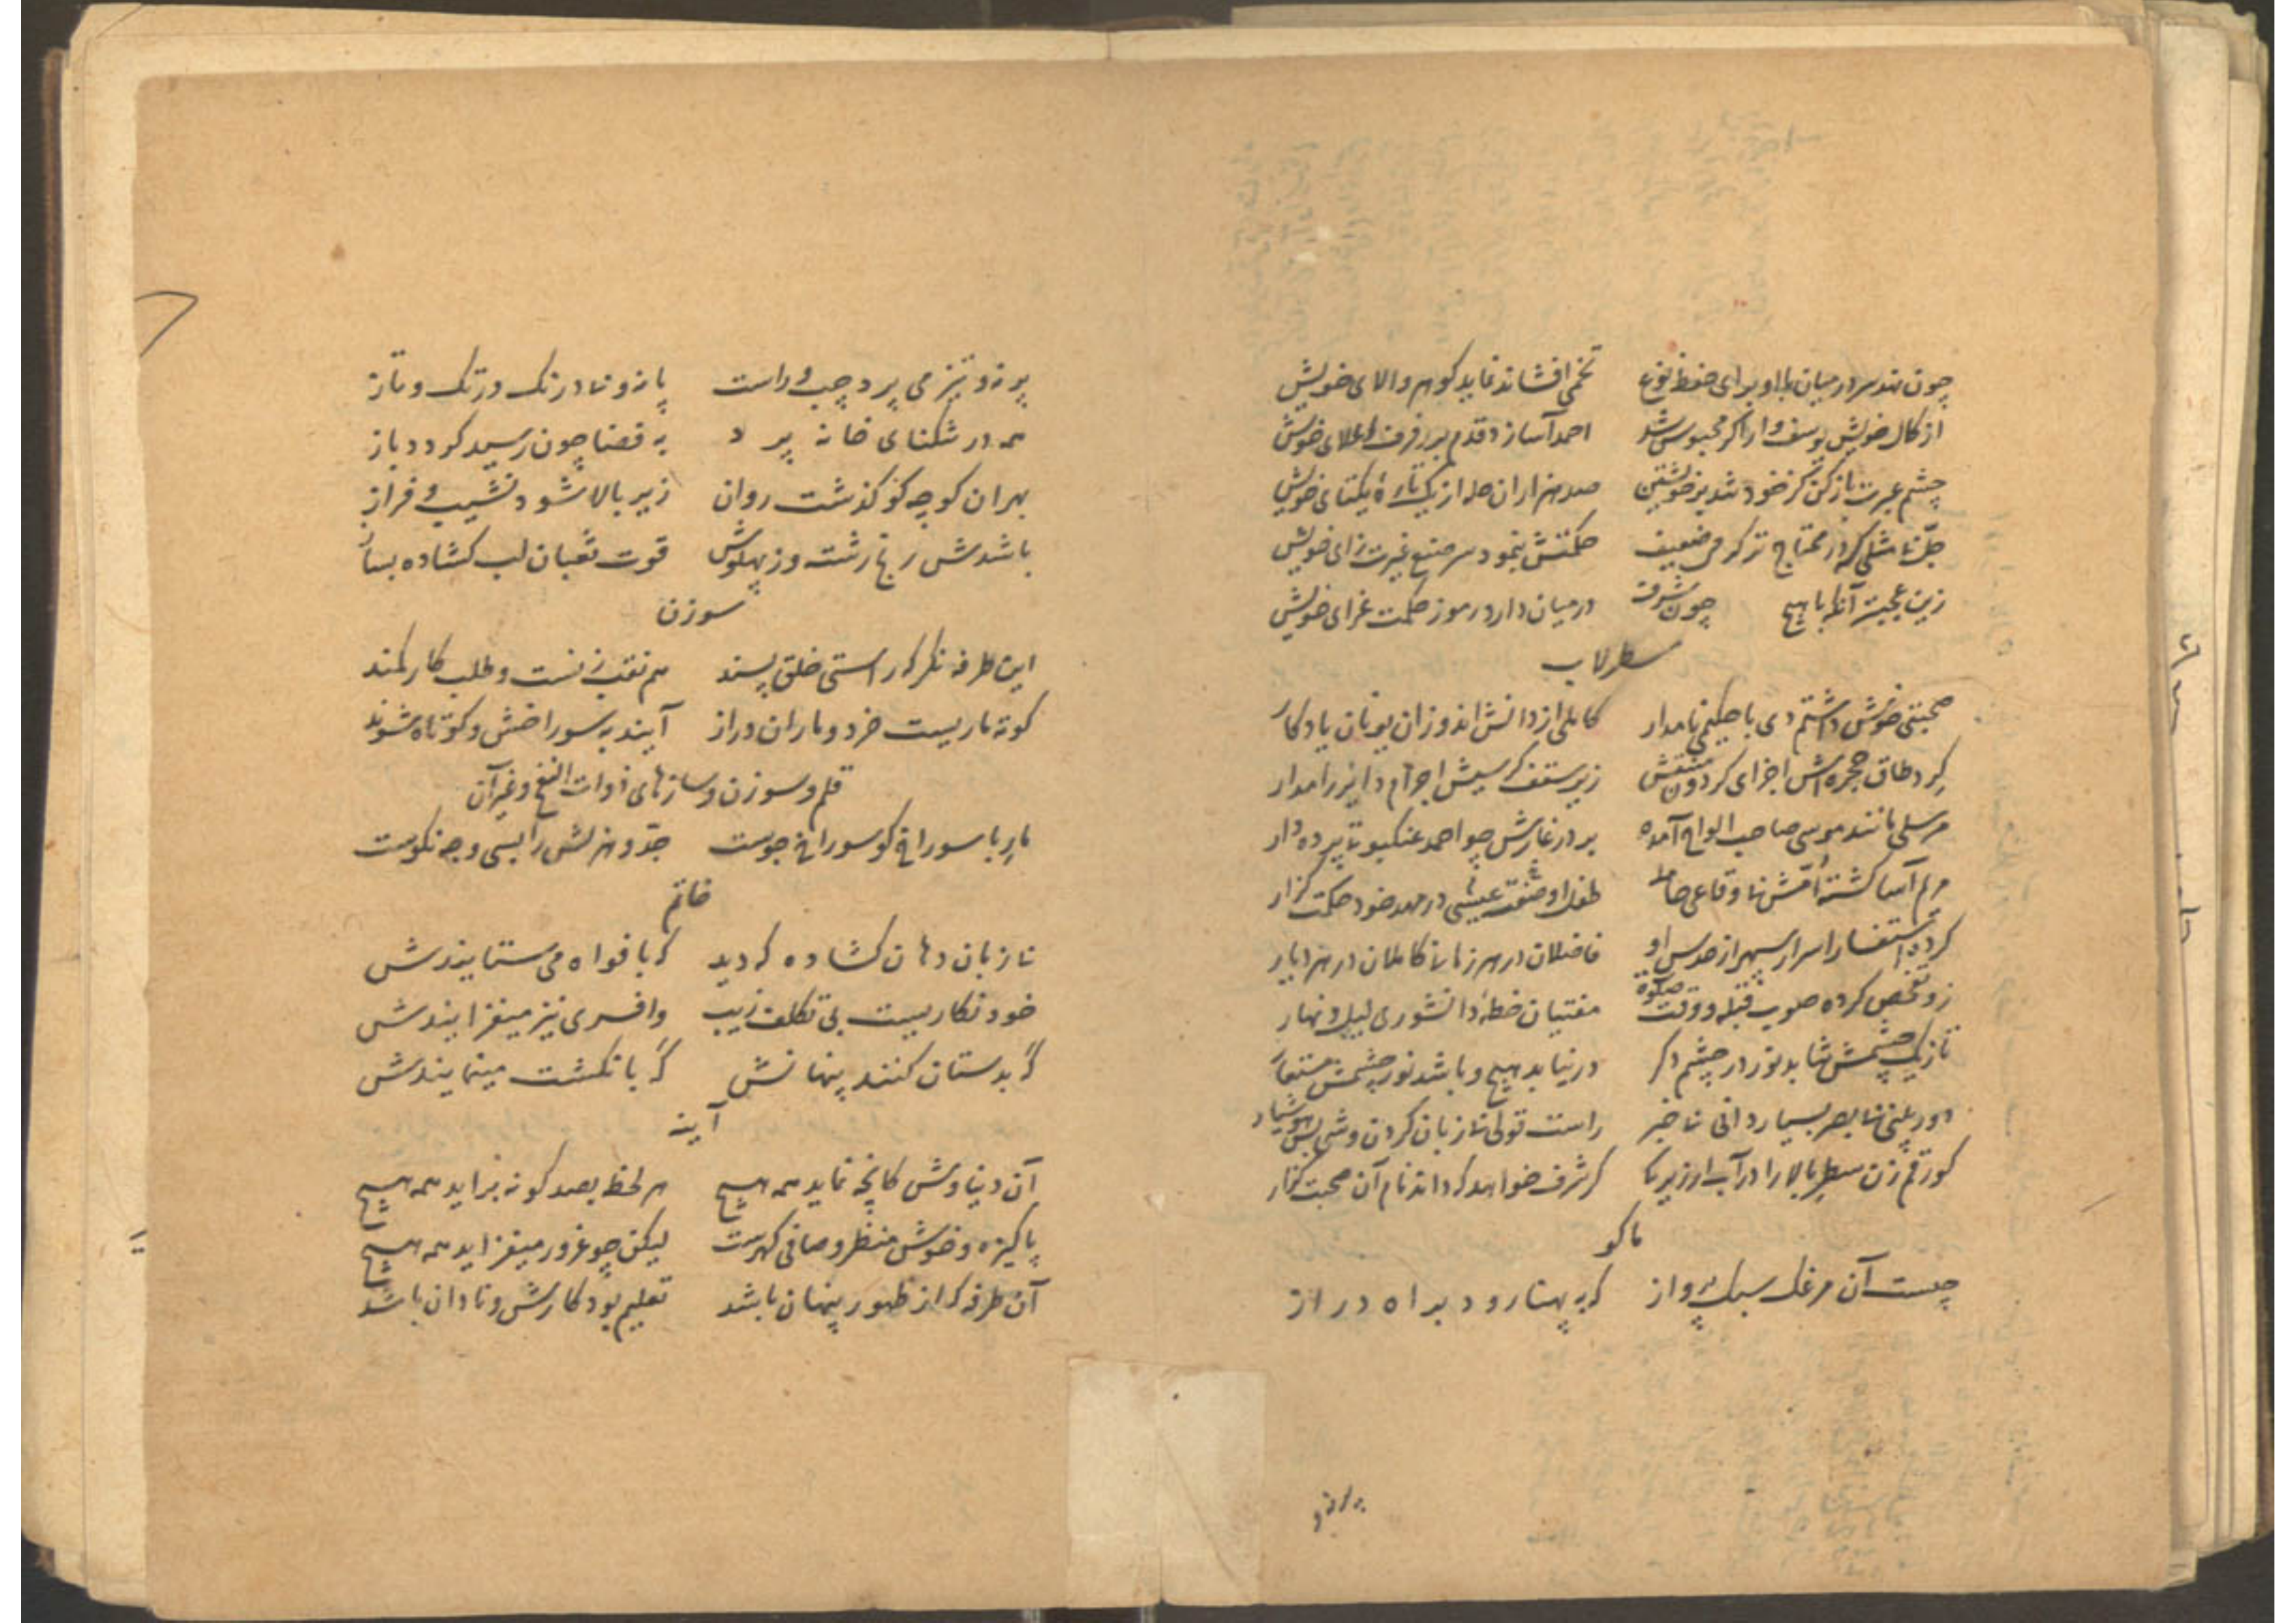 چون نهد سر در میان با او برای حفظ نوع تخمی افشاند نماید گوهر والای خویش
از کمال خویش یوسف وار اگر محبوس شد احمد آسا زد قدم بر رفرف اعلای خویش
چشم عبرت باز کن کز خود شد بر خویشتن صد هزاران حله از یک تارهٔ یکتای خویش
جلّ تا مثلی که از محتاج تر کرمی ضعیف حکمتش بنمود سر صنع غیرت زای خویش
زین عجبتر آنکه با هیچ چون شرف در میان دارد رموز حکمت غرای خویش
سطرلاب
صحبتی خوش داشتم دی با حکیمی نامدار کاملی از دانش اندوزان یونان یادگار
گرد طاق حجره اش اجزای گردون منتقش زیر سقف کرسیش اجرام دایر را مدار
مرسلی مانند موسی صاحب الواح آمده بر در غارش چو احمد عنکبوتا پرده دار
مریم آسا گشته امّش نا وقاعی حامله طفل او صفت عیسی در مهد خود حکمت گزار
کرده استفسار اسرار سپهر از حدس او فاضلان در هر زمان کاملان در هر دیار
زو تفحص کرده صوب قبله و وقت صلوة مفتیان خطهٔ دانشوری لیل و نهار
تا زیک چشمش نتابد نور در چشم دگر در نیابد هیچ و باشد نور چشمش مستعار
دوربینی نا بصر بسیار دانی نا خبر راست قولی نا زبان گردن وشی بس هوشیار
کو رقم زن سطر بالا را در آب ار زیر کا گر شرف خواهد که داند نام آن صحبت گذار
ماکو
چیست آن مرغک سبک پرواز که به پهنا رود براه دراز
پر نه و تیز می پرد چپ و راست پا نه و نا درنگ در تگ و تاز
همه در تنگنای خانه پرد به قضا چون رسید گردد باز
بهر آن کوچه کو گذشت روان زیر بالا شود نشیب و فراز
باشدش رخ ز رشت وز پهلوش قوت ثعبان لب گشاده بساز
سوزن
این طرفه نگر که راستی خلق پسند هم نقب زنست و طلب کار کمند
کوته ماریست خرد و ماران دراز آیند به سوراخش و کوتاه شوند
قلم و سوزن و سازهای ذوات النفخ و غیر آن
مار با سوراخ کو سوراخ جوست جدّ و هزلش را بسی وجه نکوست
خاتم
نا زبان دهان گشاده که دید که بافواه می ستایندش
خود نگاریست بی تکلف زیب وافسری نیز میفزایندش
گه بدستان کنند پنهانش گه بانگشت مینمایندش
آینه
آن دنیاوش کانچه نماید همه هیچ هر لحظه بصد گونه بزاید همه هیچ
پاکیزه و خوش منظر و صافی گهرست لیکن چو غرور میفزاید همه هیچ
آن طرفه که از ظهور پنهان باشد تعلیم بود کارش و نادان باشد